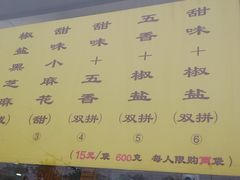 椒盐黑芝麻
甜味小麻花(甜)③
甜味+五香(双拼)④
五香+椒盐(双拼)⑤
甜味+椒盐(双拼)⑥
(15元/袋 600克 每人限购两袋)